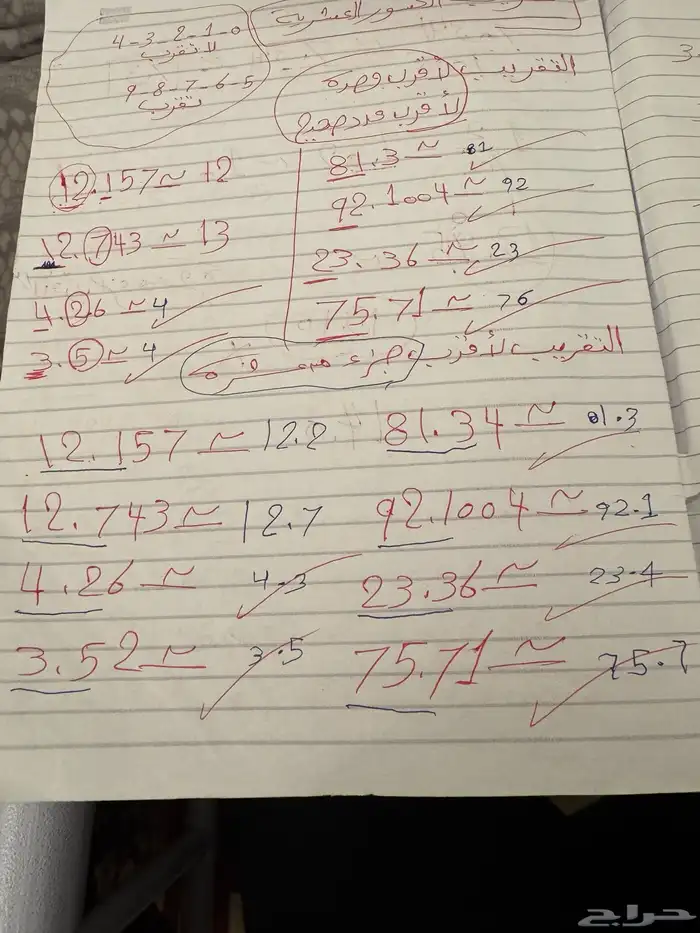 الكسور العشرية
4-3-2-1-0
لا تقرب
9-8-7-6-5
تقرب
التقريب لأقرب وحدة
لأقرب عدد صحيح
81.3 ≃ 81
92.1004 ≃ 92
23.36 ≃ 23
75.71 ≃ 76
12.157 ≃ 12
12.743 ≃ 13
4.26 ≃ 4
3.5 ≃ 4
التقريب لأقرب جزء من عشرة
81.34 ≃ 81.3
92.1004 ≃ 92.1
23.36 ≃ 23.4
75.71 ≃ 75.7
12.157 ≃ 12.2
12.743 ≃ 12.7
4.26 ≃ 4.3
3.52 ≃ 3.5
حراج